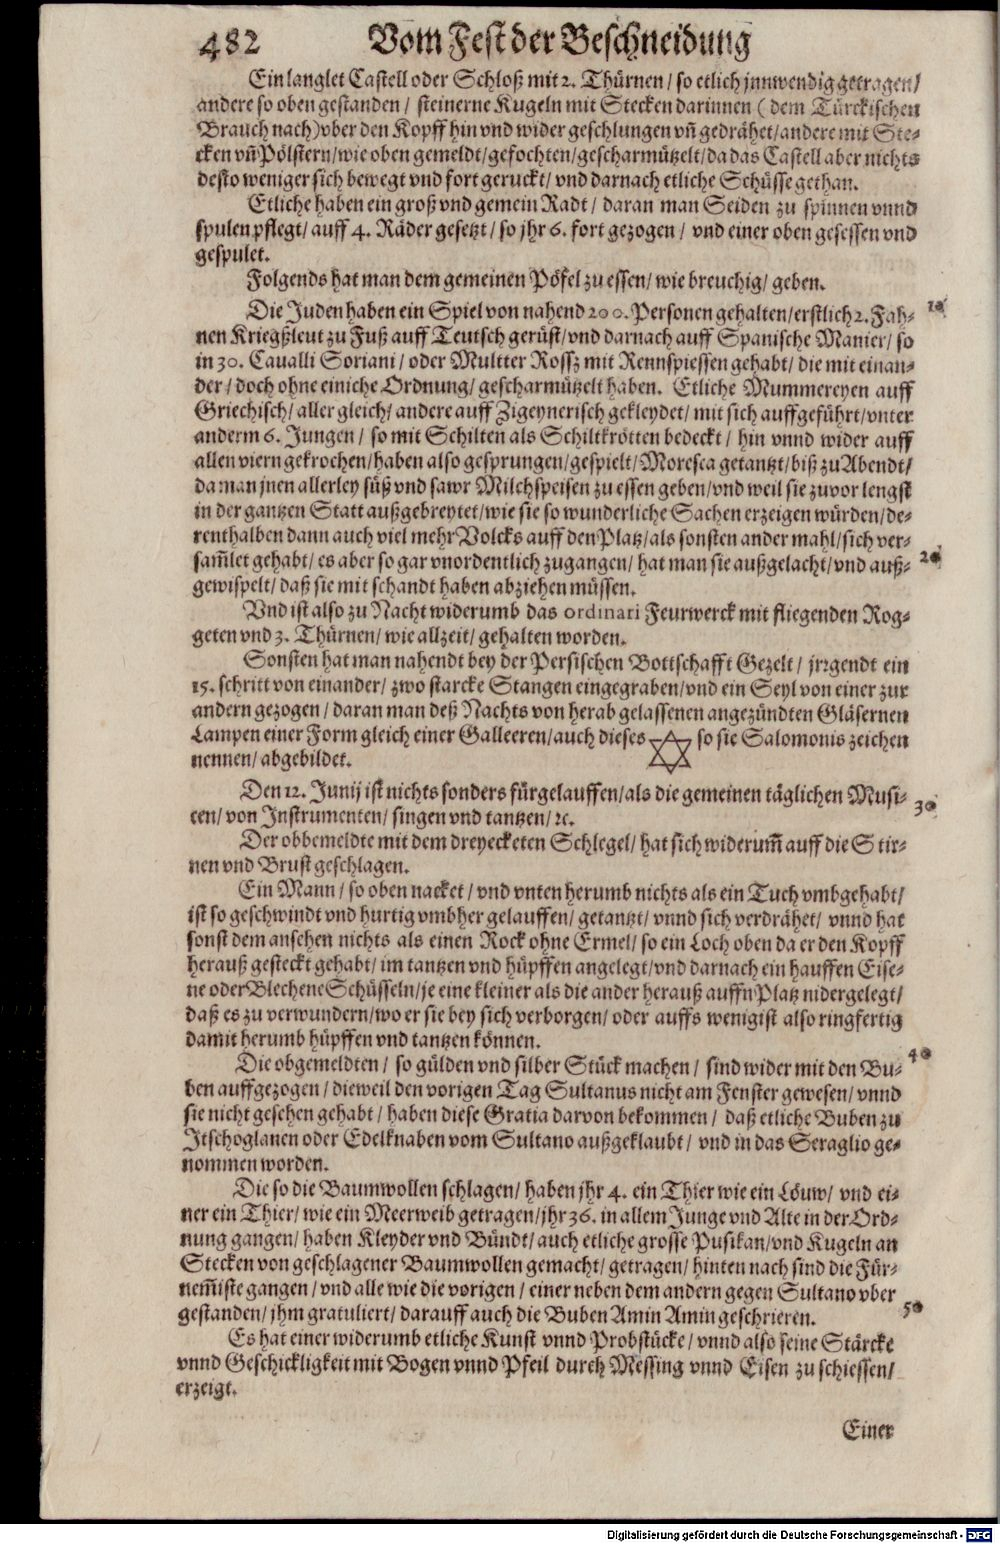 482 Vom Fest der Beschneidung
Ein langlet Castell oder Schloß mit 2. Thürnen / so etlich jnnwendig getragen /
andere so oben gestanden / steinerne Kugeln mit Stecken darinnen ( dem Türckischen
Brauch nach) vber den Kopff hin vnd wider geschlungen vñ gedrähet / andere mit Ste-
cken vñ Pölstern / wie oben gemeldt / gefochten / gescharmützelt / da das Castell aber nichts
desto weniger sich bewegt vnd fort geruckt / vnd darnach etliche Schüsse gethan.
Etliche haben ein groß vnd gemein Radt / daran man Seiden zu spinnen vnnd
spulen pflegt / auff 4. Räder gesetzt / so jhr 6. fort gezogen / vnd einer oben gesessen vnd
gespulet.
Folgends hat man dem gemeinen Pöfel zu essen / wie breuchig / geben.
Die Juden haben ein Spiel von nahend 200. Personen gehalten / erstlich 2. Fah- 10
nen Kriegßleut zu Fuß auff Teutsch gerüst / vnd darnach auff Spanische Manier / so
in 30. Caualli Soriani / oder Multter Rossz mit Rennspiessen gehabt / die mit einan-
der / doch ohne einiche Ordnung / gescharmützelt haben. Etliche Mummereyen auff
Griechisch / aller gleich / andere auff Zigeynerisch gekleydet / mit sich auffgeführt / vnter
anderm 6. Jungen / so mit Schilten als Schiltkrötten bedeckt / hin vnnd wider auff
allen viern gekrochen / haben also gesprungen / gespielt / Moresca getantzt / biß zu Abendt /
da man jnen allerley süß vnd sawr Milchspeisen zu essen geben / vnd weil sie zuvor lengst
in der gantzen Statt außgebreytet / wie sie so wunderliche Sachen erzeigen würden / de-
renthalben dann auch viel mehr Volcks auff den Platz / als sonsten ander mahl / sich ver-
sam̃let gehabt / es aber so gar vnordentlich zugangen / hat man sie außgelacht / vnd auß- 20
gewispelt / daß sie mit schandt haben abziehen müssen.
Vnd ist also zu Nacht widerumb das ordinari Feurwerck mit fliegenden Rog-
geten vnd 3. Thürnen / wie allzeit / gehalten worden.
Sonsten hat man nahendt bey der Persischen Bottschafft Gezelt / jrrgendt ein
15. schritt von einander / zwo starcke Stangen eingegraben / vnd ein Seyl von einer zur
andern gezogen / daran man deß Nachts von herab gelassenen angezündten Gläsernen
Lampen einer Form gleich einer Galleeren / auch dieses ✡ so sie Salomonis zeichen
nennen / abgebildet.
Den 12. Junij ist nichts sonders fürgelauffen / als die gemeinen täglichen Musi- 30
cen / von Instrumenten / singen vnd tantzen / ꝛc.
Der obbemeldte mit dem dreyecketen Schlegel / hat sich widerum̃ auff die Stir-
nen vnd Brust geschlagen.
Ein Mann / so oben nacket / vnd vnten herumb nichts als ein Tuch vmbgehabt /
ist so geschwindt vnd hurtig vmbher gelauffen / getantzt / vnnd sich verdrähet / vnnd hat
sonst dem ansehen nichts als einen Rock ohne Ermel / so ein Loch oben da er den Kopff
herauß gesteckt gehabt / im tantzen vnd hüpffen angelegt / vnd darnach ein hauffen Eise-
ne oder Blechene Schüsseln / je eine kleiner als die ander herauß auffn Platz nidergelegt /
daß es zu verwundern / wo er sie bey sich verborgen / oder auffs wenigist also ringfertig
damit herumb hüpffen vnd tantzen können.
Die obgemeldten / so gülden vnd silber Stück machen / sind wider mit den Bu- 40
ben auffgezogen / dieweil den vorigen Tag Sultanus nicht am Fenster gewesen / vnnd
sie nicht gesehen gehabt / haben diese Gratia darvon bekommen / daß etliche Buben zu
Itschoglanen oder Edelknaben vom Sultano außgeklaubt / vnd in das Seraglio ge-
nommen worden.
Die so die Baumwollen schlagen / haben jhr 4. ein Thier wie ein Löuw / vnd ei-
ner ein Thier / wie ein Meerweib getragen / jhr 36. in allem Junge vnd Alte in der Ord-
nung gangen / haben Kleyder vnd Bündt / auch etliche grosse Pusikan / vnd Kugeln an
Stecken von geschlagener Baumwollen gemacht / getragen / hinten nach sind die Für-
nem̃iste gangen / vnd alle wie die vorigen / einer neben dem andern gegen Sultano vber
gestanden / jhm gratuliert / darauff auch die Buben Amin Amin geschrieren. 50
Es hat einer widerumb etliche Kunst vnnd Probstücke / vnnd also seine Stärcke
vnnd Geschickligkeit mit Bogen vnnd Pfeil durch Messing vnnd Eisen zu schiessen /
erzeigt.
Einer
Digitalisierung gefördert durch die Deutsche Forschungsgemeinschaft - DFG